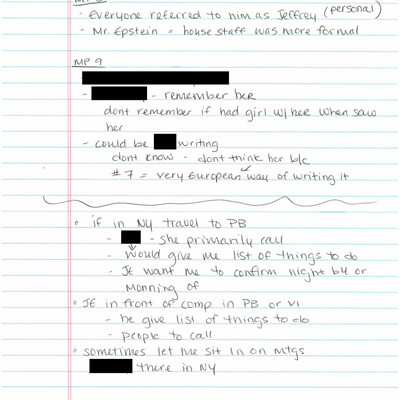 - Everyone referred to him as Jeffrey (personal)
- Mr. Epstein = house staff was more formal
MP 9
- - remember her
dont remember if had girl w/ her when saw
her
- could be writing
dont know - dont think her b/c
#7 = very European way of writing it
• if in NY travel to PB
- - she primarily call
- would give me list of things to do
- JE want me to confirm night b4 or
morning of
• JE in front of comp in PB or VI
- he give list of things to do
- people to call
• sometimes let me sit in on mtgs
there in NY